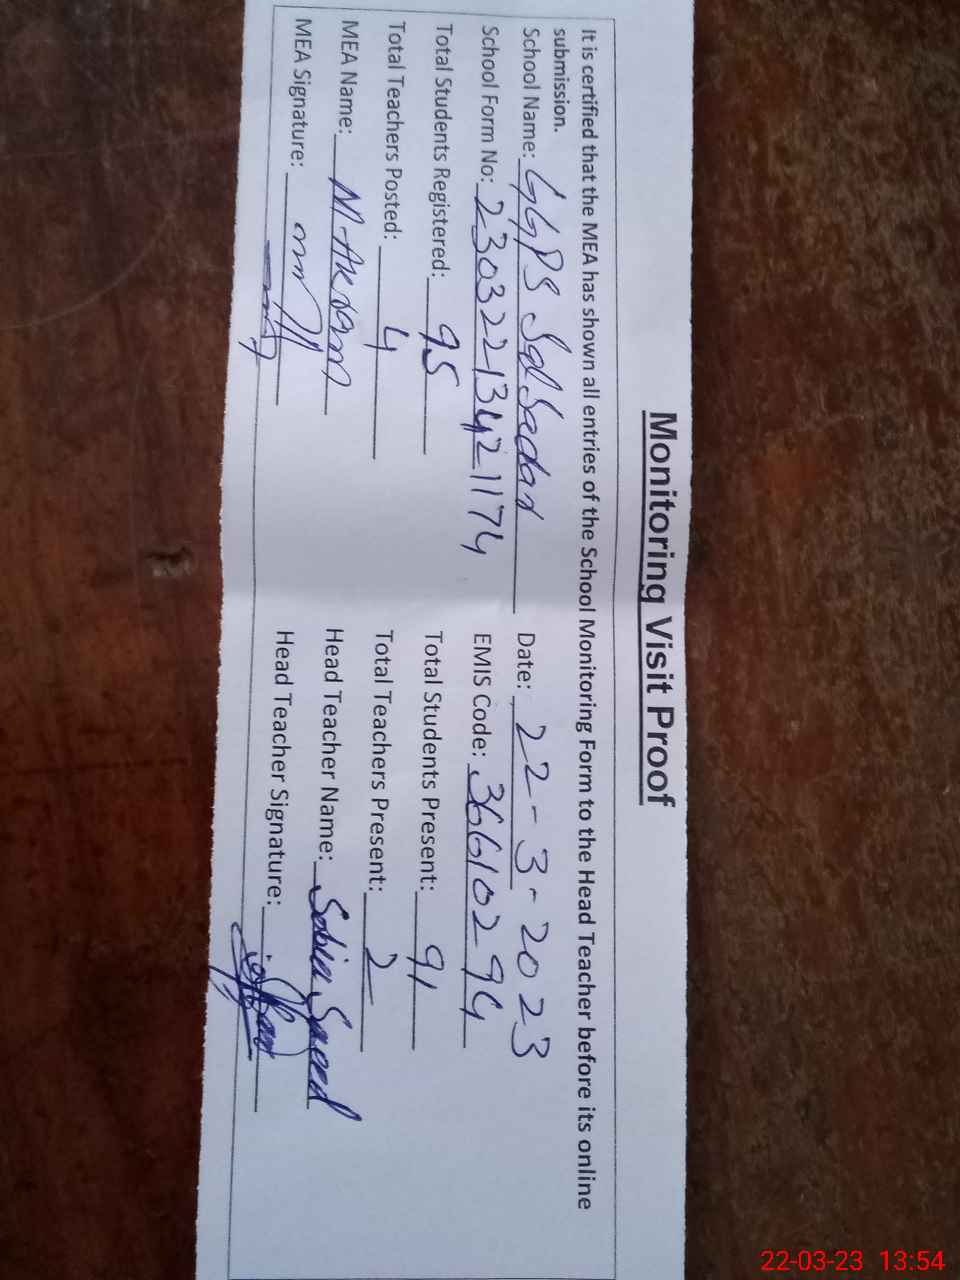 Monitoring Visit Proof
It is certified that the MEA has shown all entries of the School Monitoring Form to the Head Teacher before its online
submission.
School Name: GGPS Sd Sadan Date: 22-3-2023
School Form No: 23032213421174 EMIS Code: 36610294
Total Students Registered: 95 Total Students Present: 91
Total Teachers Posted: 4 Total Teachers Present: 2
MEA Name: M-Akram Head Teacher Name: Sobia Saeed
MEA Signature: Head Teacher Signature:
22-03-23 13:54